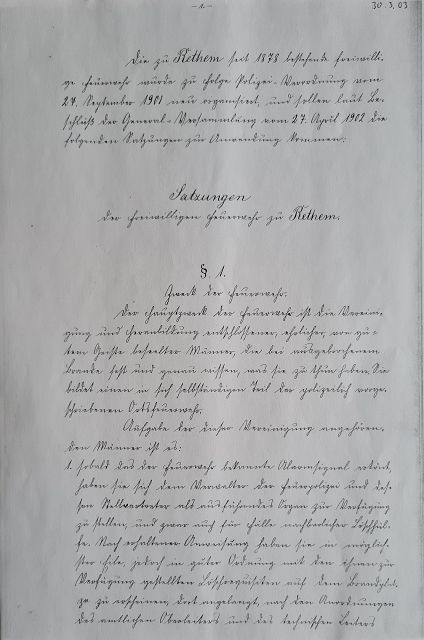 - 1. -
30.3.03
Die zu Rethem seit 1878 bestehende freiwilli-
ge Feuerwehr wurde zu Folge Polizei-Verordnung vom
27. September 1901 neu organisiert, und sollen laut Be-
schluß der General-Versammlung vom 27. April 1902 die
folgenden Satzungen zur Anwendung kommen:
Satzungen
der freiwilligen Feuerwehr zu Rethem.
§ 1.
Zweck der Feuerwehr.
Der Hauptzweck der Feuerwehr ist die Vereini-
gung und Heranbildung entschlossener, ehrlicher, von gu-
tem Geiste beseelter Männer, die bei ausgebrochenem
Brande fest und genau wissen, was sie zu thun haben. Sie
bildet einen in sich selbständigen Teil der polizeilich vorge-
schriebenen Ortsfeuerwehr.
Aufgabe der dieser Vereinigung angehören-
den Männer ist es:
1. sobald das der Feuerwehr bekannte Alarmsignal ertönt,
haben sie sich dem Verwalter der Feuerpolizei und des-
sen Stellvertreter als ausführendes Organ zur Verfügung
zu stellen, und zwar auch für Fälle nachbarlicher Löschhül-
fe. Nach erhaltener Anweisung haben sie in möglich-
ster Eile, jedoch in guter Ordnung mit den ihnen zur
Verfügung gestellten Löschrequisiten auf dem Brandplat-
ze zu erscheinen, dort angelangt, nach den Anordnungen
des amtlichen Oberleiters und des technischen Leiters